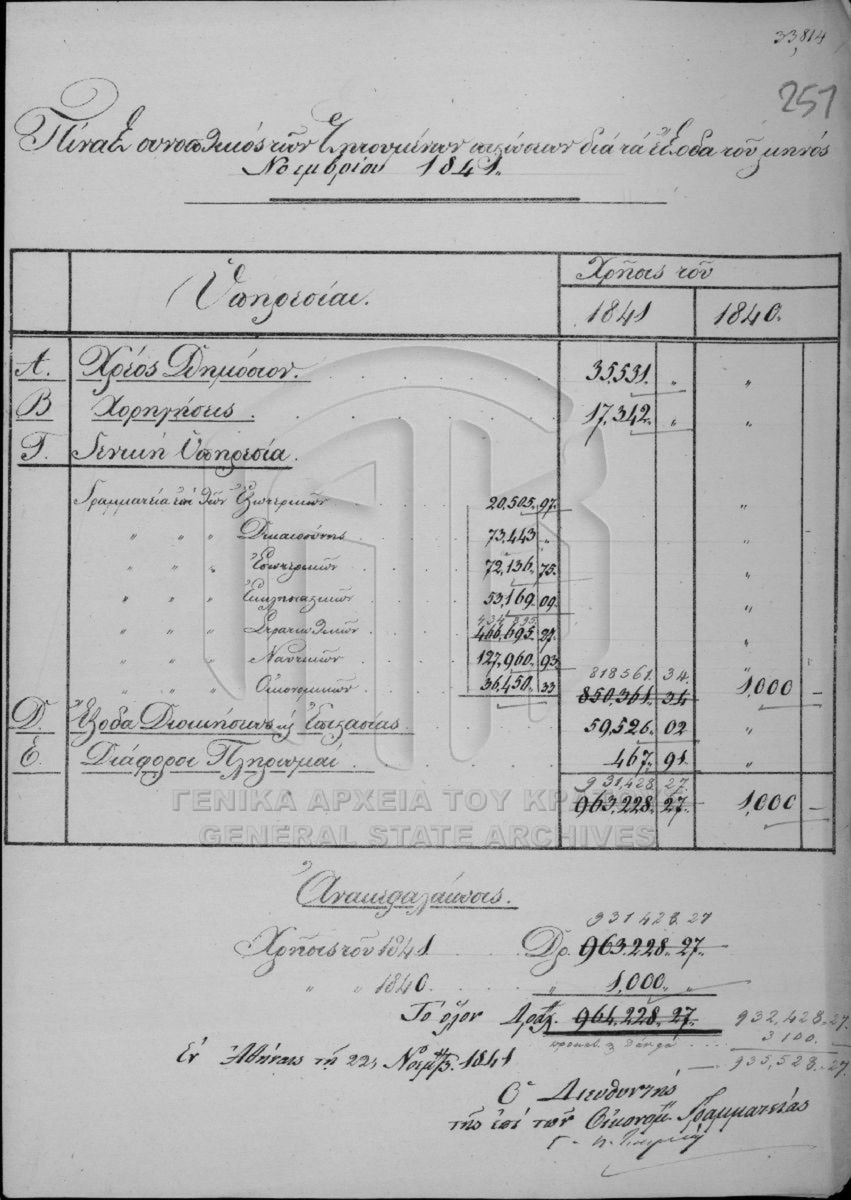 33,814
251
Πίναξ συνοπτικός τῶν ζητουμένων πιστώσεων διά τά ἔξοδα τοῦ μηνός
Νοεμβρίου 1841.
Ὑπηρεσίαι. Χρῆσις τοῦ
1841 1840.
Α. Χρέος Δημόσιον. 35,531. „ „
Β Χορηγήσεις . 17,342. „ „
Γ. Γενική Ὑπηρεσία.
Γραμματεία ἐπί τῶν Ἐξωτερικῶν 20,505. 97. „
„ „ „ Δικαιοσύνης 73,443 „ „
„ „ „ Ἐσωτερικῶν 72,136. 75. „
„ „ „ Ἐκκλησιαστικῶν 53,169. 09. „
434 895
„ „ „ Στρατιωτικῶν 466,695. 27. „
„ „ „ Ναυτικῶν 127,960. 93. „
818561. 34.
„ „ „ Οἰκονομικῶν 36,450. 33 850,361. 34 1,000 –
Δ. Ἔξοδα Διοικήσεως & Εἰσπράξεως. 59,526. 02 „
Ε. Διάφοροι Πληρωμαί . 467. 91. „
931,428. 27.
963,228. 27. 1,000 –
ΓΕΝΙΚΑ ΑΡΧΕΙΑ ΤΟΥ ΚΡΑΤΟΥΣ
GENERAL STATE ARCHIVES
Ἀνακεφαλαίωσις.
931428. 27
Χρῆσις τοῦ 1841 Δρ. 963,228. 27.
„ „ 1840. „ 1,000. „
Τό ὅλον Δραχ. 964,228. 27. 932,428. 27.
3100.
935,528. 27.
Ἐν Ἀθήναις τῇ 22 Νοεμβ. 1841
Ὁ Διευθυντής
τῆς ἐπί τῶν Οἰκονομ. Γραμματείας